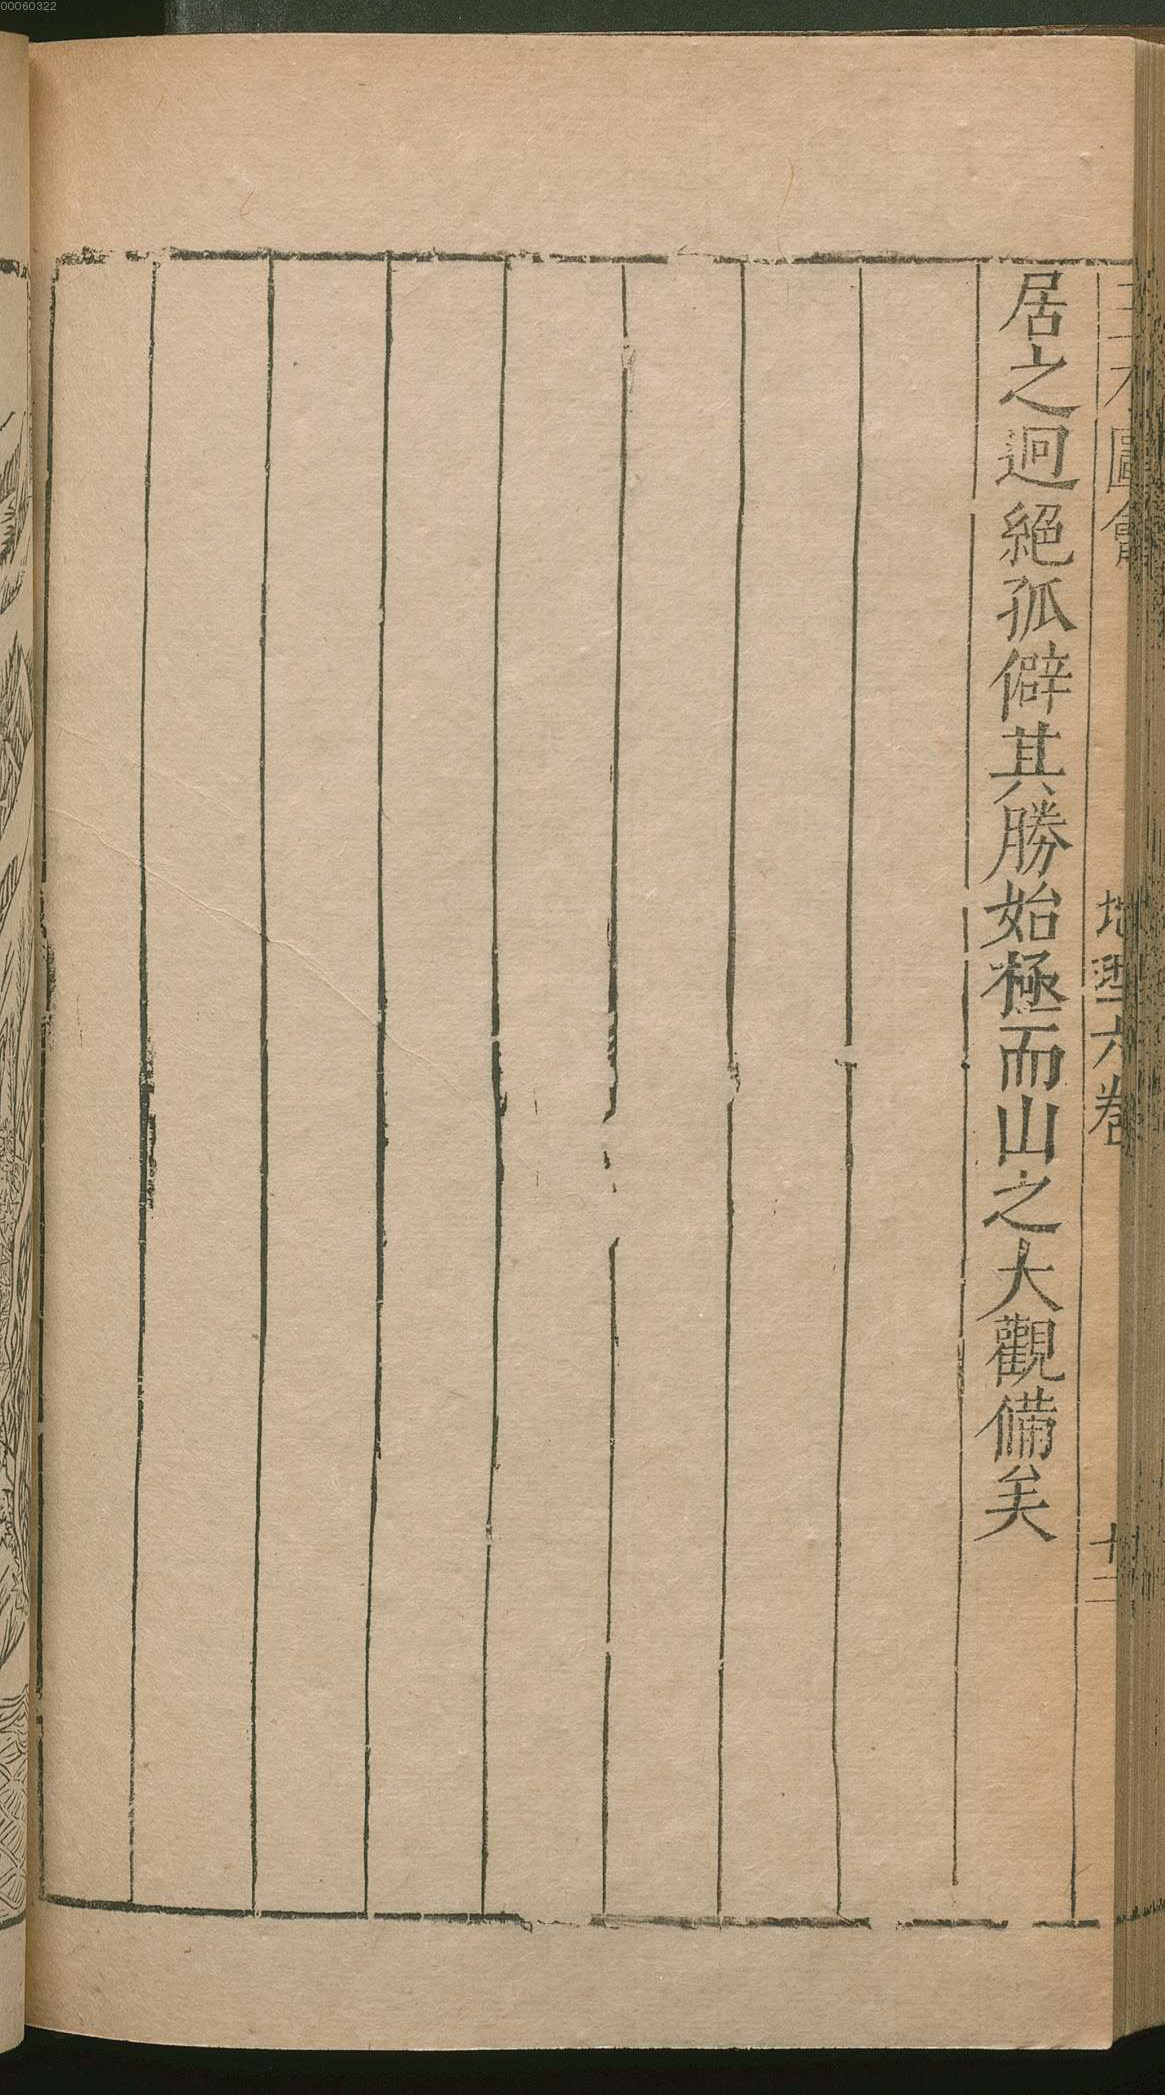 00060322
三才圖會
地理六卷
廿二
居之迥絕孤僻其勝始極而山之大觀備矣